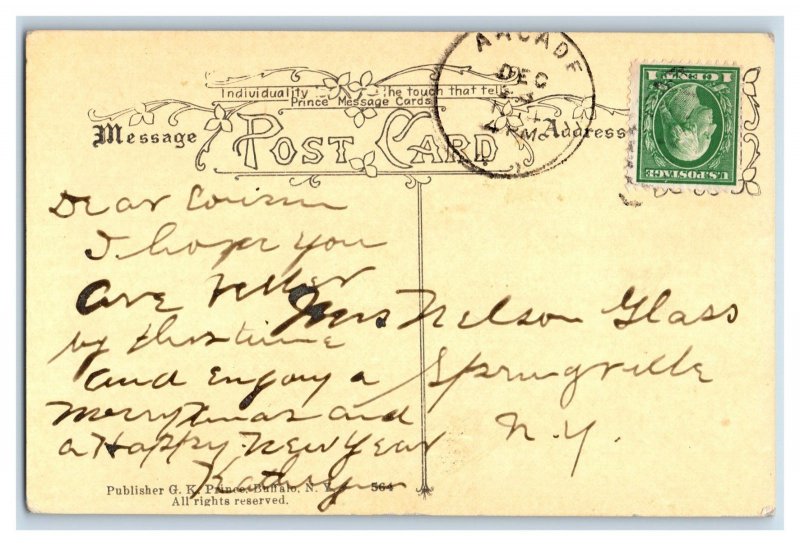 Individuality the touch that tells
Prince Message Cards
Message Address
POST CARD
ARCADE
DEC
PM
1 CENT 1
U.S. POSTAGE
Dear Cousin
I hope you
are better
by this time
and enjoy a
Merry Xmas and
a Happy New Year
Kathryn
Mrs. Nelson Glass
Springville
N.Y.
Publisher G. K. Prince, Buffalo, N. Y. 564
All rights reserved.